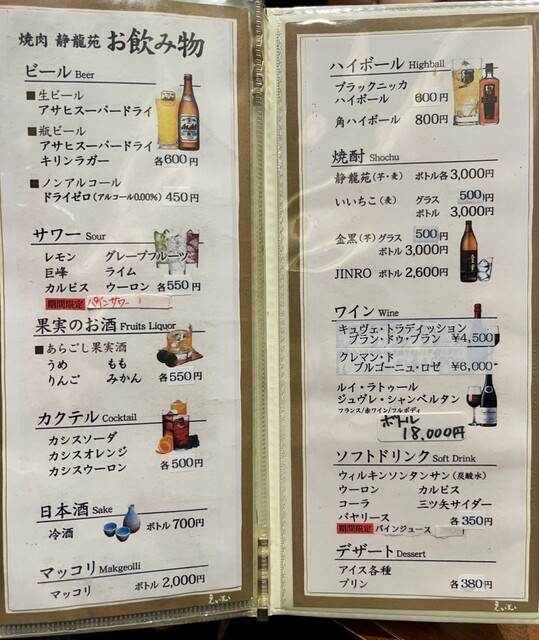 焼肉 静龍苑 お飲み物
ビール Beer
■生ビール
アサヒスーパードライ
■瓶ビール
アサヒスーパードライ
キリンラガー 各600円
■ノンアルコール
ドライゼロ(アルコール0.00%) 450円
サワー Sour
レモン グレープフルーツ
巨峰 ライム
カルピス ウーロン 各550円
期間限定 パインサワー!
果実のお酒 Fruits Liquor
■あらごし果実酒
うめ もも
りんご みかん 各550円
カクテル Cocktail
カシスソーダ
カシスオレンジ
カシスウーロン 各500円
日本酒 Sake
冷酒 ボトル 700円
マッコリ Makgeolli
マッコリ ボトル 2,000円
ハイボール Highball
ブラックニッカ
ハイボール 600円
角ハイボール 800円
焼酎 Shochu
静龍苑(芋・麦) ボトル各 3,000円
いいちこ(麦) グラス 500円
ボトル 3,000円
金黒(芋) グラス 500円
ボトル 3,000円
JINRO ボトル 2,600円
ワイン Wine
キュヴェ・トラディッション
ブラン・ドゥ・ブラン ¥4,500
クレマン・ド
ブルゴーニュ・ロゼ ¥6,000
ルイ・ラトゥール
ジュヴレ・シャンベルタン
フランス/赤ワイン/フルボディ
ボトル
18,000円
ソフトドリンク Soft Drink
ウィルキンソンタンサン(炭酸水)
ウーロン カルピス
コーラ 三ツ矢サイダー
バヤリース 各350円
期間限定 パインジュース
デザート Dessert
アイス各種
プリン 各380円